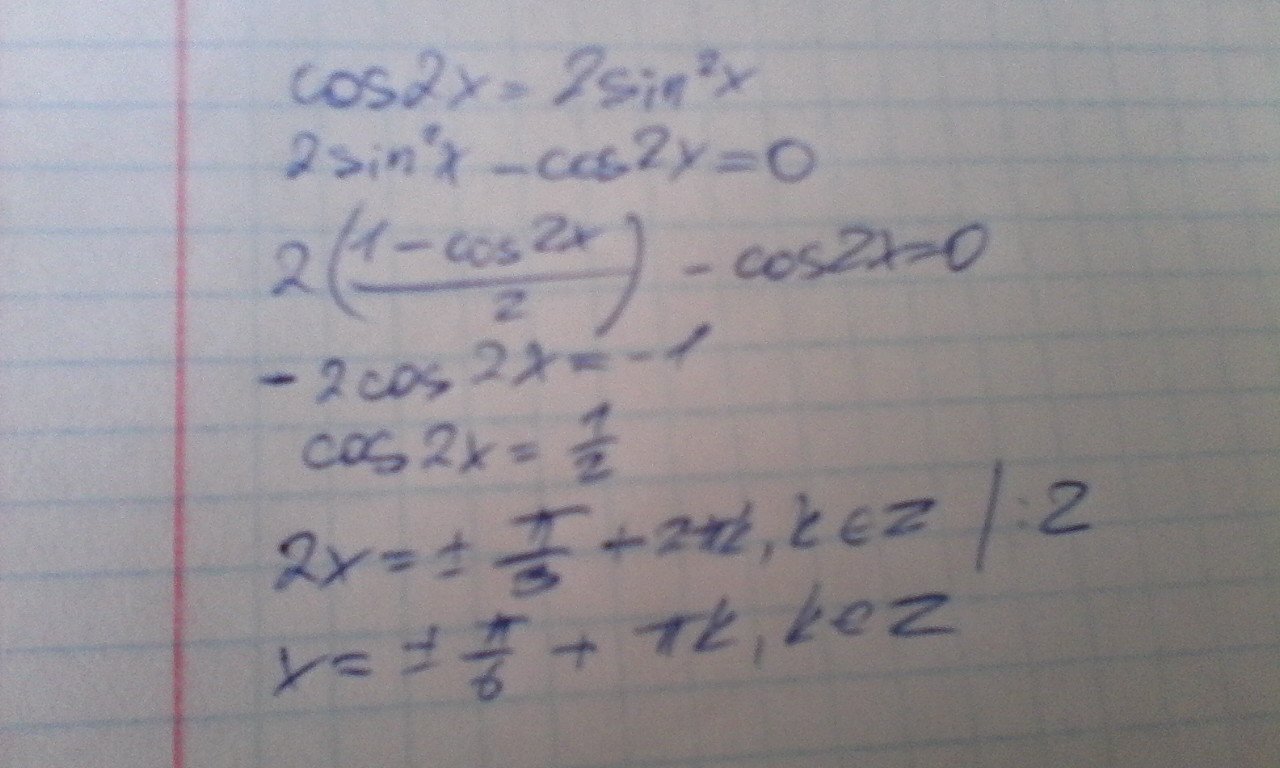 cos2x = 2sin²x
2sin²x - cos2x = 0
2(1 - cos2x / 2) - cos2x = 0
- 2cos 2x = -1
cos 2x = 1/2
2x = ± π/3 + 2πk, k ∈ Z | : 2
x = ± π/6 + πk, k ∈ Z